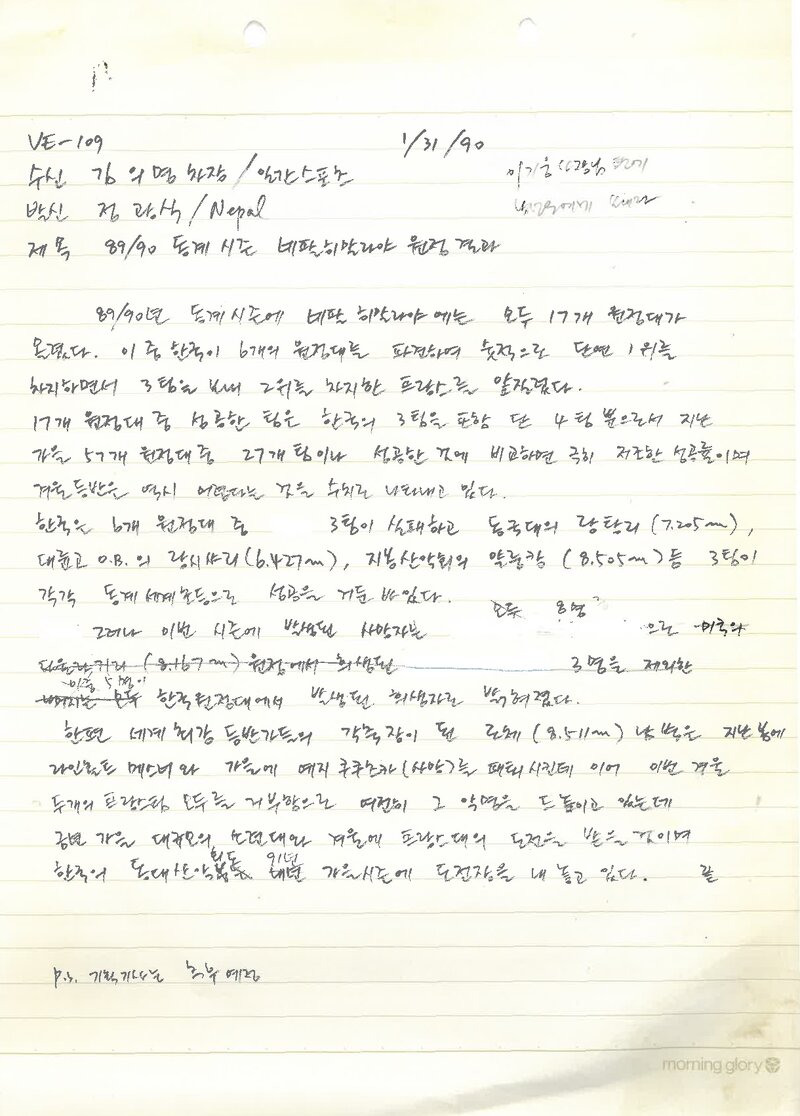 VE-109 1/31/90
수신 김의명 차장/일간스포츠
발신 정광식/Nepal
제목 89/90 동계시즌 네팔히말라야 원정결과
89/90년 동계시즌에 네팔 히말라야에는 모두 17개 원정대가
몰렸다. 이중 한국이 6개의 원정대를 파견하여 숫적으로 단연 1위를
차지하면서 3팀을 보내 2위를 차지한 프랑스를 앞질렀다.
17개 원정대중 성공한 팀은 한국의 3팀을 포함 단 4팀 뿐으로서 지난
가을 57개 원정대중 27개팀이나 성공한 것에 비교하면 극히 저조한 성공률이며
겨울등반은 역시 어렵다는 것을 수치로 나타내고 있다.
한국은 6개 원정대 중 3팀이 실패하고 동국대의 랑탕리(7.205m),
대륜고 O.B.의 랑시샤리(6.427m), 지봉산악회의 얄룽캉 (8.505m)등 3팀이
각각 동계세계초등으로 성공을 거둔 바있다.
모두 8명
그러나 이번 시즌에 발생된 사망자는 으로 미국의
다울라기리 (8.167m) 원정에서 희생된 3명을 제외한
이중 5명이
나머지는 모두 한국원정대에서 발생된 희생자로 밝혀졌다.
한편 세계최강 등반가들의 각축장이 된 로체(8.511m) 남벽은 지난봄에
라인홀트 메스너와 가을에 예지 쿠쿠츠카(사망)를 패퇴시킨데 이어 이번 겨울
두개의 프랑스팀 모두를 거부함으로 여전히 그 악명을 드높이고 있는데
금년 가을 대규모의 소련대와 겨울에 프랑스대의 도전을 받을 것이며
한국의 동대산악 91년 가을시즌에 도전장을 내 놓고 있다. 끝
p.s. 기획기사는 추후 예정
morning glory